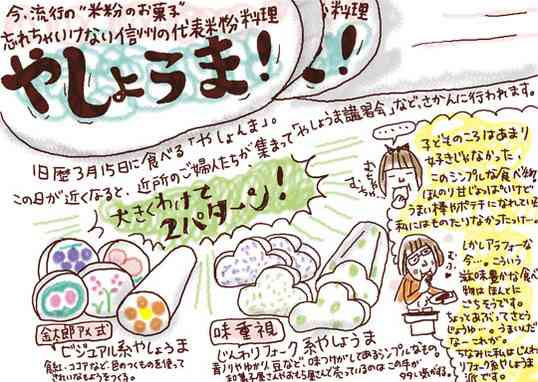 今、流行の"米粉のお菓子"
忘れちゃいけない信州の代表米粉料理
やしょうま!
料理
ま!
旧暦3月15日に食べる「やしょんま」。
この日が近くなると、近所のご婦人たちが集まって「やしょうま講習会」など、さかんに行われます。
大きくわけて
2パターン!
金太郎アメ式
ビジュアル系やしょうま
食紅・ココアなど、色のつくものを使って
きれいなもようをつくる。
味重視
じんわりフォーク系やしょうま
青ノリやゆかり、豆など、味つけがしてあるシンプルなもの。
和菓子屋さんやおもち屋さんで売っているのはこの手が
99%くらいかな。
子どものころはあまり
好きじゃなかった、
このシンプルな食べ物。
ほんのり甘じょっぱいけど
うまい棒やポテチになれている
私にはものたりなかったけー。
しかしアラフォーな
今…。こういう
滋味豊かな食べ
物はほんとに
ごちそうです。
ちょっとあぶってさとう
じょうゆ…。うまいんだ
なーこれが。
ちなみに私はじんわ
りフォーク系やしょうま
派です。